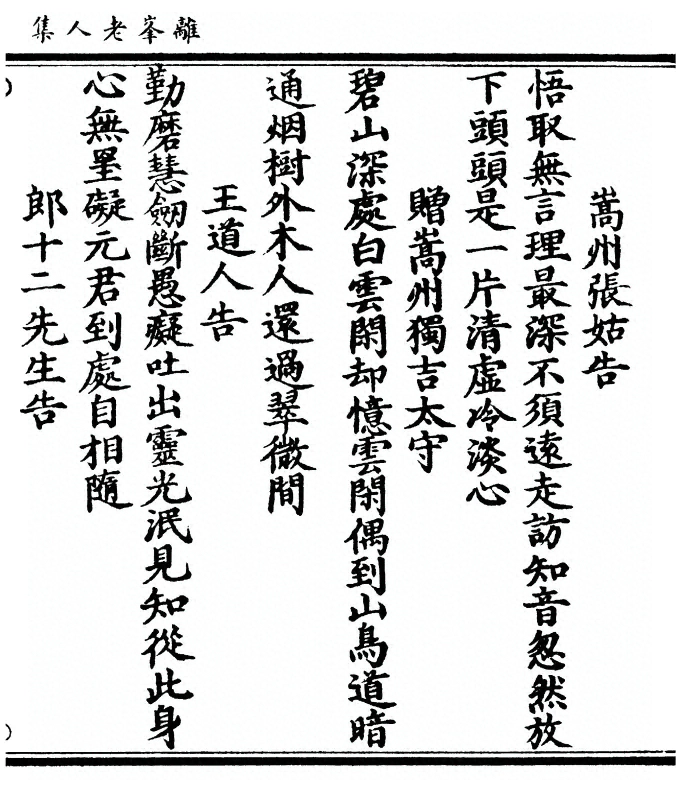 離峯老人集
嵩州張姑告
悟取無言理最深不須遠走訪知音忽然放
下頭頭是一片清虛冷淡心
贈嵩州獨吉太守
碧山深處白雲閑却憶雲閑偶到山鳥道暗
通烟樹外木人還過翠微間
王道人告
勤磨慧劒斷愚癡吐出靈光泯見知從此身
心無罣礙元君到處自相隨
郎十二先生告